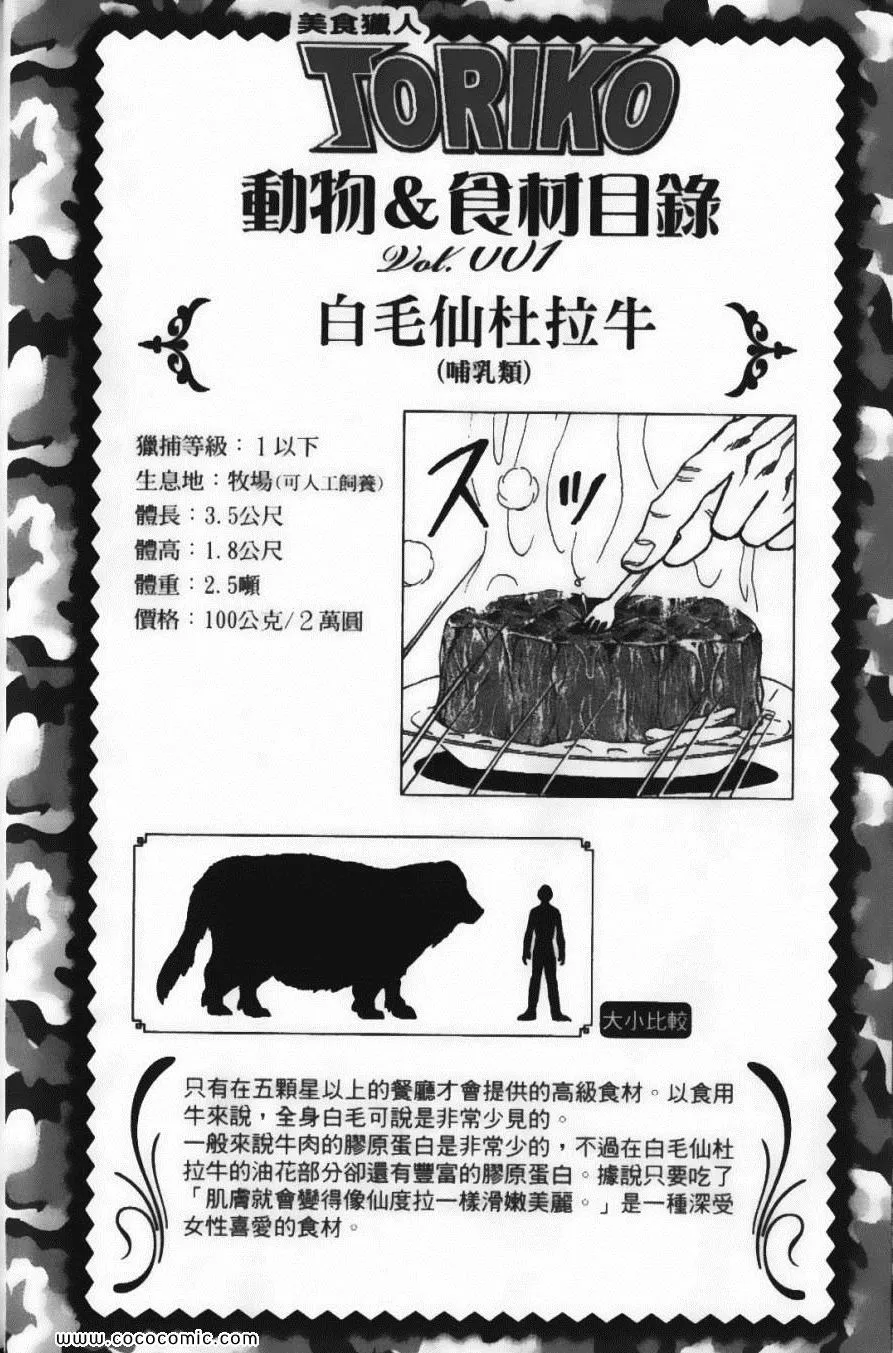 美食獵人
TORIKO
動物&食材目錄
Vol. 001
白毛仙杜拉牛
(哺乳類)
獵捕等級：1以下
生息地：牧場(可人工飼養)
體長：3.5公尺
體高：1.8公尺
體重：2.5噸
價格：100公克/2萬圓
スッ
大小比較
只有在五顆星以上的餐廳才會提供的高級食材。以食用
牛來說，全身白毛可說是非常少見的。
一般來說牛肉的膠原蛋白是非常少的，不過在白毛仙杜
拉牛的油花部分卻還有豐富的膠原蛋白。據說只要吃了
「肌膚就會變得像仙度拉一樣滑嫩美麗。」是一種深受
女性喜愛的食材。
www.cococomic.com